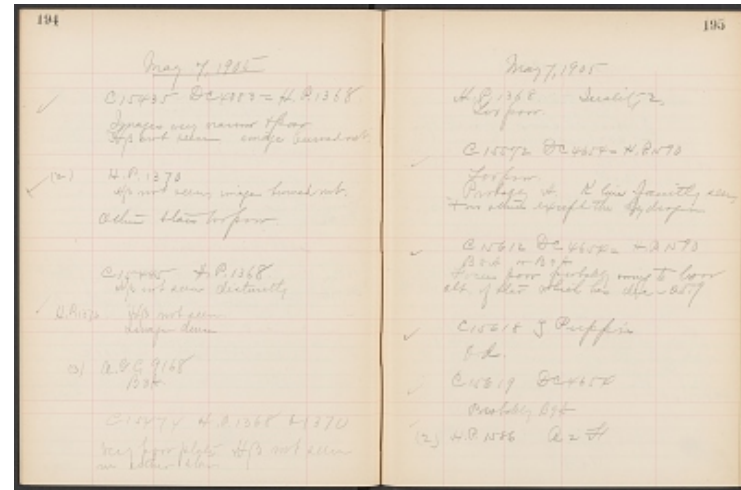 194
May 7, 1905
C 15435 DC 4083 = H.P. 1368
Images very narrow & poor
Hβ not seen image burned out.
(2) H.P. 1370
Hβ not seen, image burned out.
Other stars too poor.
H.P. 1368
Hβ not seen distinctly
Hβ not seen
Images dense
(3) A.G.C. 9168
C 15474 H.P. 1368 & 1370
Very poor plate Hβ not seen
in either star
195
May 7, 1905
H.P. 1368 Quality 2,
Too poor.
C 15572 DC 4654 = H.P. 1590
Too poor.
Probably A K line faintly seen
no others except the Hydrogen
C 15612 DC 4654 = H.P. 1590
Focus poor probably owing to low
alt. of star which has dec.
C 15618 J Puppis
O.K.
C 15619 DC 4654
Probably
(2) H.P. 1586